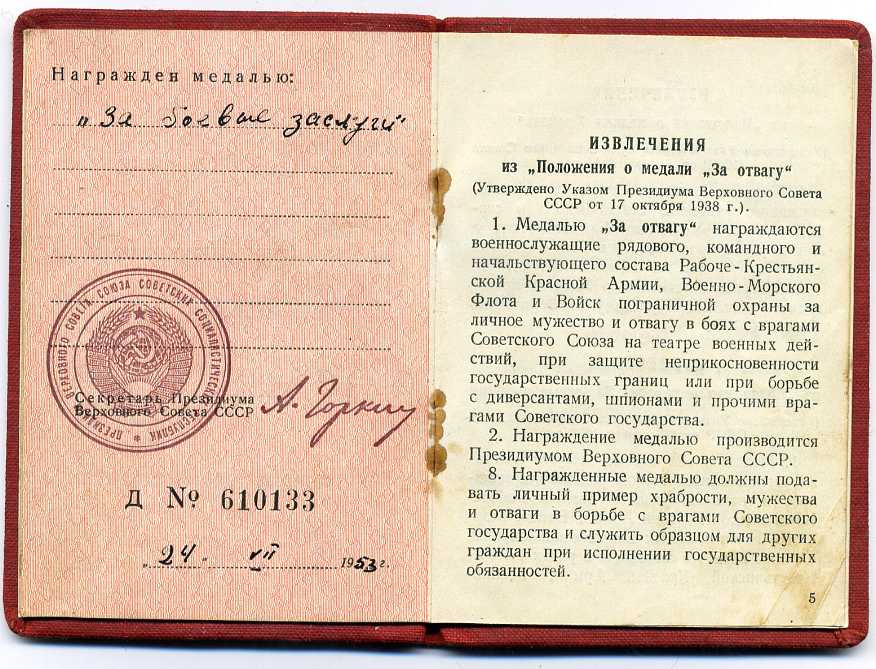 Награжден медалью:
„За боевые заслуги“
ПРЕЗИДИУМ ВЕРХОВНОГО СОВЕТА СОЮЗА СОВЕТСКИХ СОЦИАЛИСТИЧЕСКИХ РЕСПУБЛИК
Секретарь Президиума
Верховного Совета СССР
А. Горкин
Д № 610133
„24“ VII 1953 г.
ИЗВЛЕЧЕНИЯ
из „Положения о медали „За отвагу“
(Утверждено Указом Президиума Верховного Совета
СССР от 17 октября 1938 г.).
1. Медалью „За отвагу“ награждаются
военнослужащие рядового, командного и
начальствующего состава Рабоче-Крестьян-
ской Красной Армии, Военно-Морского
Флота и Войск пограничной охраны за
личное мужество и отвагу в боях с врагами
Советского Союза на театре военных дей-
ствий, при защите неприкосновенности
государственных границ или при борьбе
с диверсантами, шпионами и прочими вра-
гами Советского государства.
2. Награждение медалью производится
Президиумом Верховного Совета СССР.
8. Награжденные медалью должны пода-
вать личный пример храбрости, мужества
и отваги в борьбе с врагами Советского
государства и служить образцом для других
граждан при исполнении государственных
обязанностей.
5